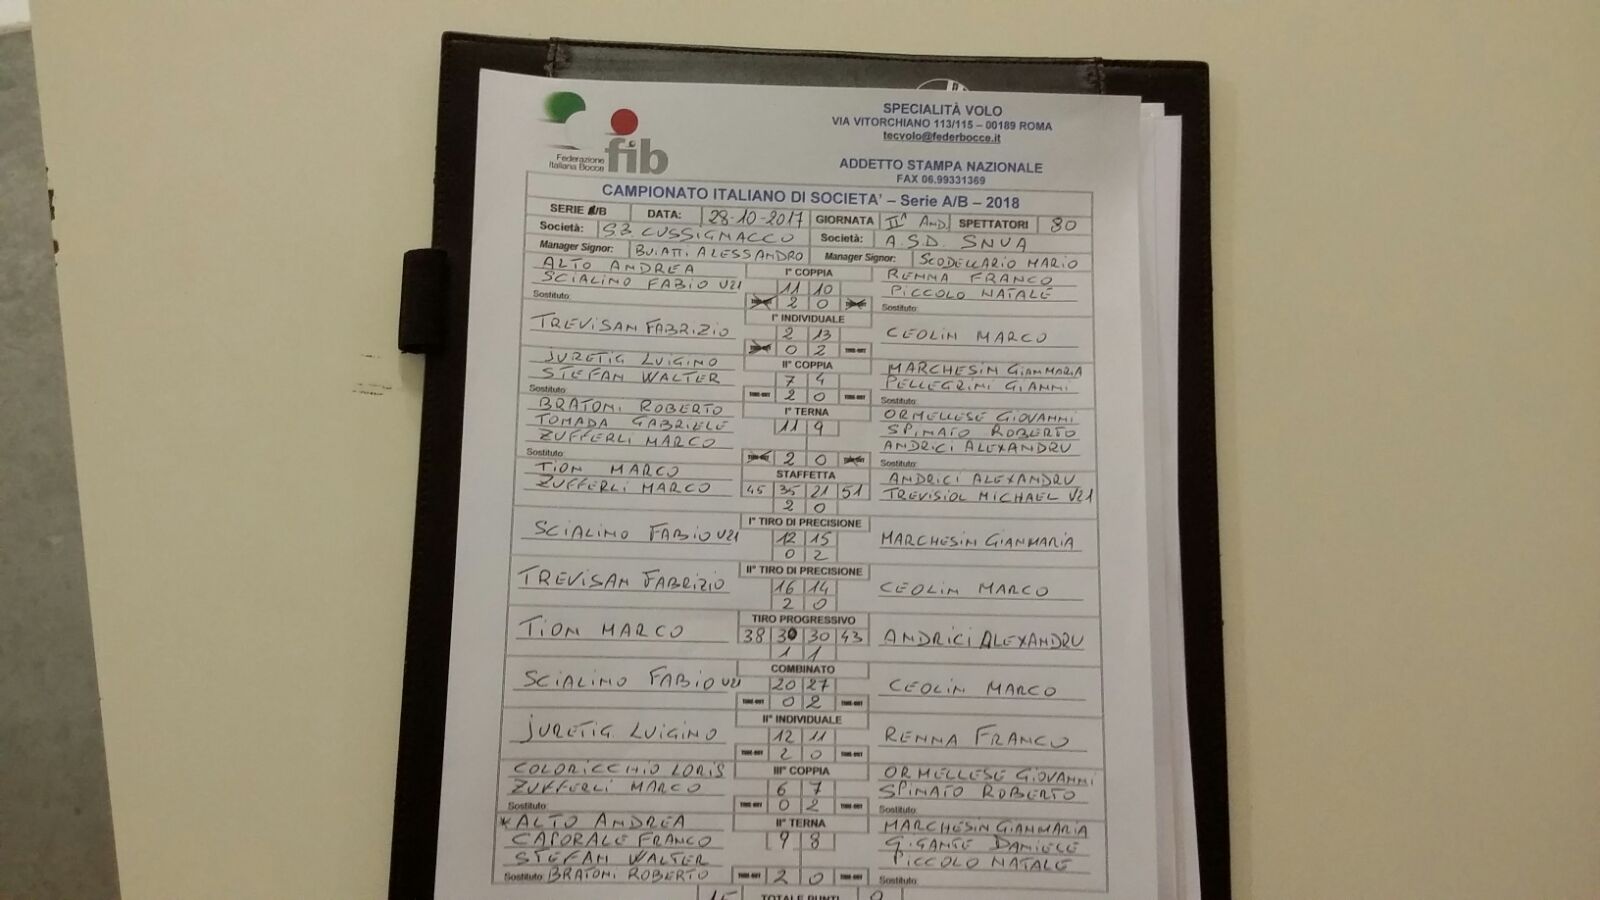 SPECIALITÀ VOLO
VIA VITORCHIANO 113/115 – 00189 ROMA
tecvolo@federbocce.it
Federazione
Italiana Bocce
fib
ADDETTO STAMPA NAZIONALE
FAX 06.99331369
CAMPIONATO ITALIANO DI SOCIETA' – Serie A/B – 2018
SERIE A/B DATA: 28-10-2017 GIORNATA IIª AND. SPETTATORI 80
Società: S.B. CUSSIGNACCO Società: A.S.D. SNUA
Manager Signor: BUIATTI ALESSANDRO Manager Signor: SCODELLARIO MARIO
ALTO ANDREA I° COPPIA RENNA FRANCO
SCIALINO FABIO U21 11 10 PICCOLO NATALE
Sostituto: TIME-OUT 2 0 TIME-OUT Sostituto:
I° INDIVIDUALE
TREVISAN FABRIZIO 2 13 CEOLIN MARCO
TIME-OUT 0 2 TIME-OUT
JURETIG LUIGINO II° COPPIA MARCHESIN GIANMARIA
STEFAN WALTER 7 4 PELLEGRINI GIANNI
Sostituto: TIME-OUT 2 0 TIME-OUT Sostituto:
BRATONI ROBERTO I° TERNA ORMELLESE GIOVANNI
TOMADA GABRIELE 11 9 SPINATO ROBERTO
ZUFFERLI MARCO ANDRICI ALEXANDRU
Sostituto: TIME-OUT 2 0 TIME-OUT Sostituto:
TION MARCO STAFFETTA ANDRICI ALEXANDRU
ZUFFERLI MARCO 45 35 21 51 TREVISIOL MICHAEL U21
2 0
I° TIRO DI PRECISIONE
SCIALINO FABIO U21 12 15 MARCHESIN GIANMARIA
0 2
II° TIRO DI PRECISIONE
TREVISAN FABRIZIO 16 14 CEOLIN MARCO
2 0
TIRO PROGRESSIVO
TION MARCO 38 30 30 43 ANDRICI ALEXANDRU
1 1
COMBINATO
SCIALINO FABIO U21 20 27 CEOLIN MARCO
TIME-OUT 0 2 TIME-OUT
II° INDIVIDUALE
JURETIG LUIGINO 12 11 RENNA FRANCO
TIME-OUT 2 0 TIME-OUT
COLORICCHIO LORIS III° COPPIA ORMELLESE GIOVANNI
ZUFFERLI MARCO 6 7 SPINATO ROBERTO
Sostituto: TIME-OUT 0 2 TIME-OUT Sostituto:
*ALTO ANDREA II° TERNA MARCHESIN GIANMARIA
CAPORALE FRANCO 9 8 GIGANTE DANIELE
STEFAN WALTER PICCOLO NATALE
Sostituto: BRATONI ROBERTO TIME-OUT 2 0 TIME-OUT Sostituto:
15 TOTALE PUNTI 9